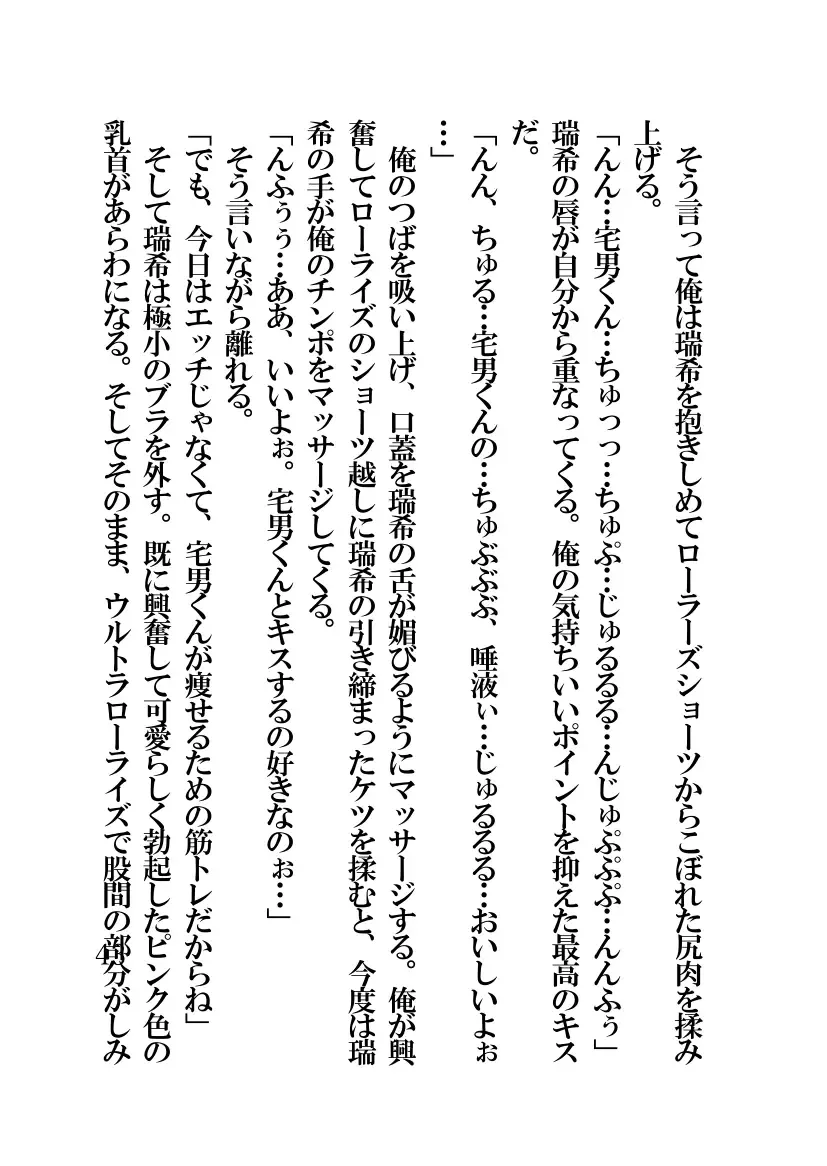 そう言って俺は瑞希を抱きしめてローラーズショーツからこぼれた尻肉を揉み
上げる。
「んん…宅男くん…ちゅっっ…ちゅぷ…じゅるるる…んじゅぷぷぷ…んんふぅ」
瑞希の唇が自分から重なってくる。俺の気持ちいいポイントを抑えた最高のキス
だ。
「んん、ちゅる…宅男くんの…ちゅぶぶぶ、唾液ぃ…じゅるるる…おいしいよぉ
…」
　俺のつばを吸い上げ、口蓋を瑞希の舌が媚びるようにマッサージする。俺が興
奮してローライズのショーツ越しに瑞希の引き締まったケツを揉むと、今度は瑞
希の手が俺のチンポをマッサージしてくる。
「んふぅぅ…ああ、いいよぉ。宅男くんとキスするの好きなのぉ…」
　そう言いながら離れる。
「でも、今日はエッチじゃなくて、宅男くんが痩せるための筋トレだからね」
　そして瑞希は極小のブラを外す。既に興奮して可愛らしく勃起したピンク色の
乳首があらわになる。そしてそのまま、ウルトラローライズで股間の部分がしみ